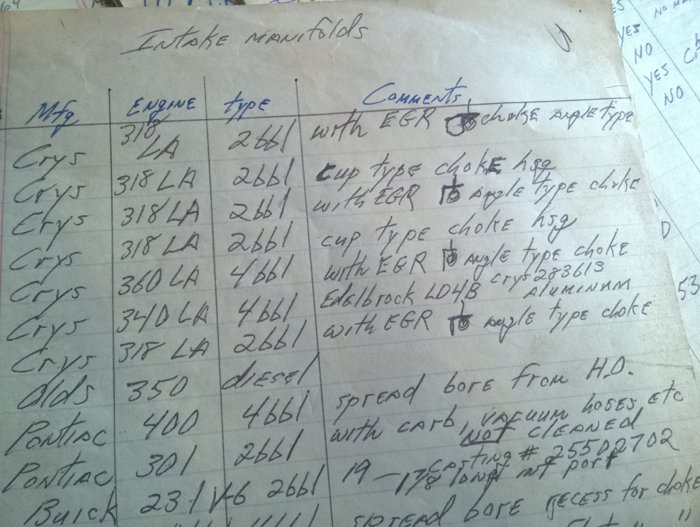 Intake manifolds
Mfg Engine type Comments
Crys 318 LA 2bbl with EGR choke angle type
Crys 318 LA 2bbl cup type choke hsg
Crys 318 LA 2bbl with EGR angle type choke
Crys 318 LA 2bbl cup type choke hsg
Crys 360 LA 4bbl with EGR angle type choke
Crys 340 LA 4bbl Edelbrock LD4B crys 283613 Aluminum
Crys 318 LA 2bbl with EGR angle type choke
Olds 350 diesel
Pontiac 400 4bbl spread bore from H.O.
Pontiac 301 2bbl with carb, vacuum hoses etc NOT CLEANED
Buick 231 V-6 2bbl 19 - 1 7/8 long int port casting # 25502702
spread bore recess for choke
YES
NO
YES
NO
53